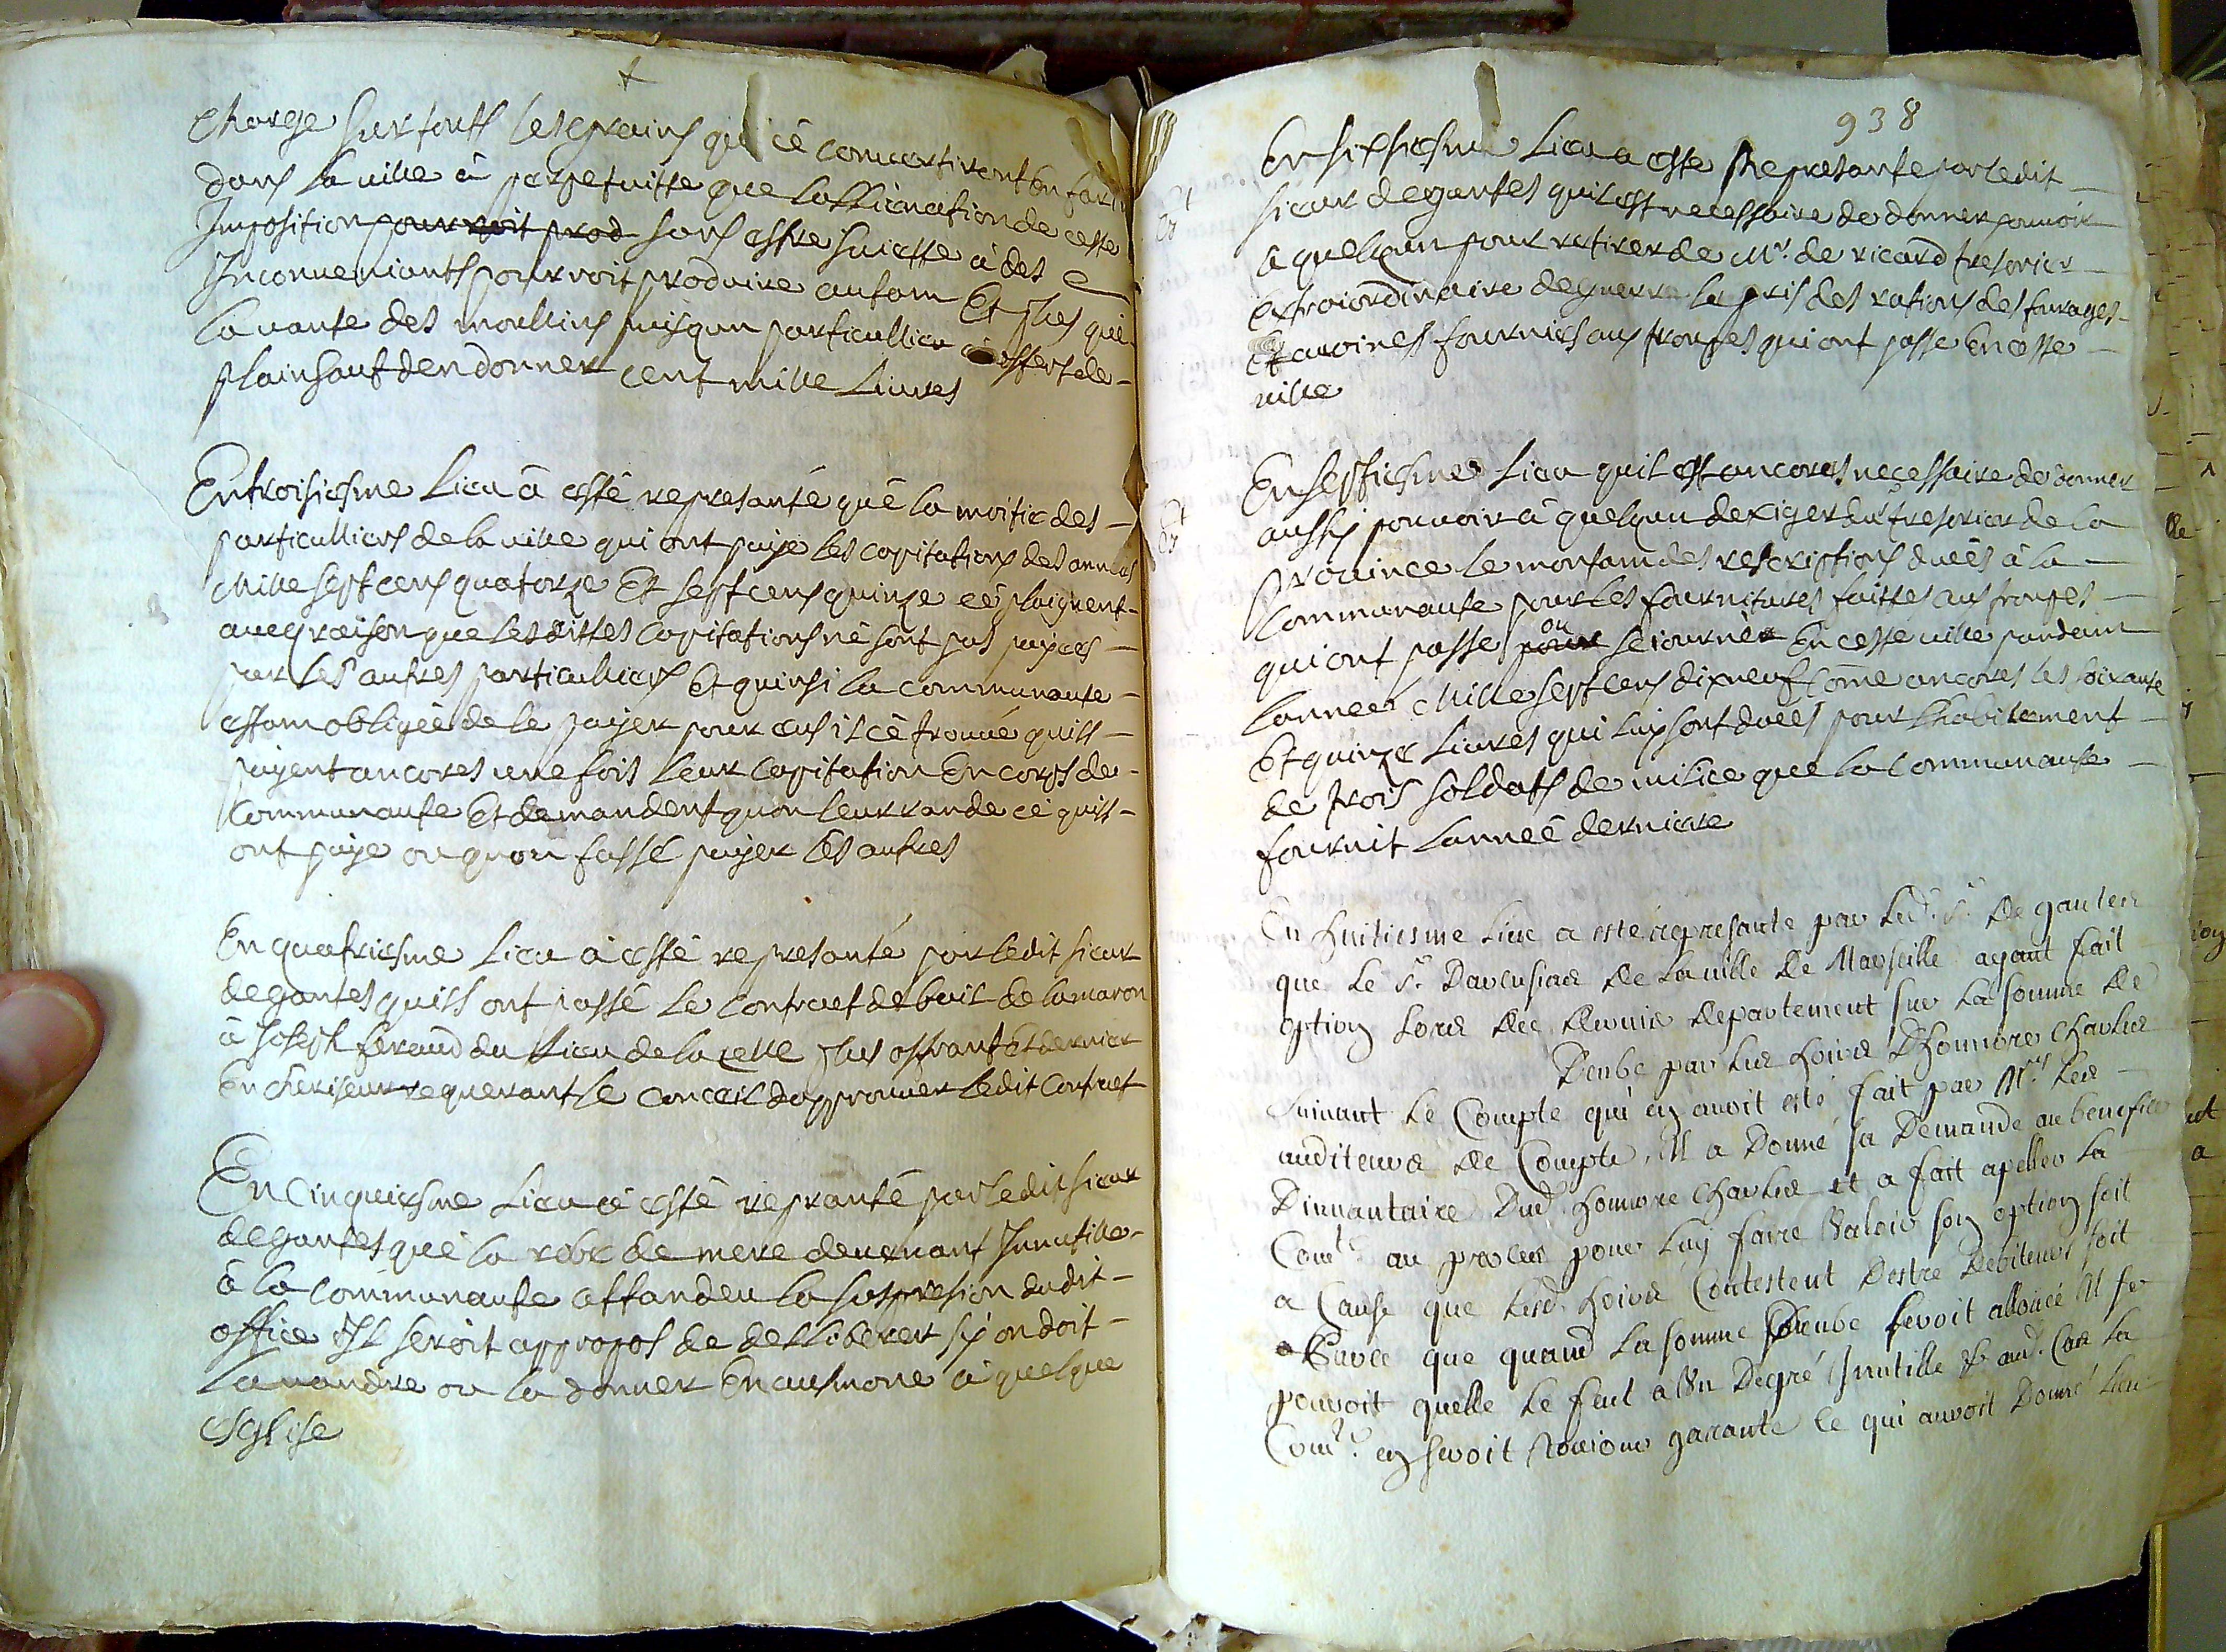 charge sur touts les grains qui cê convertiront en fari
dans la ville â perpetuitte que lallienation de cette
Imposition pourroit prod sans estre suiette â des
Inconveniants pourroit produire autam Et plus que
la vante des moullins puisqun particullier offert de
plain saut den donner cent mille livres
En troisiesme Lieu â estê represanté quê la moitie des
particulliers de la ville qui ont paije les capitations des annees
Mille sept cens quatorze Et sept cens quinze cê plaignent
aveq raison que les dittes Capitations nê sont pas paijees
par les autres particulliers Et quinsi la communaute
estam obligêe de le paijer pour eus il cê trouvê quils
paijent ancores une fois leur Capitation En corps de
Communaute Et demandent quon leur rande cê quils
ont paije ou quon fasse paijer lês autres
En quatriesme Lieu â estê represanté par ledit sieur
degantes quils ont passê le contract de bail de lamaron
â Joseph feraud du Lieu de la celle plus offrant Et dernier
En cheriseur requerant le conceil dapprouver ledit Contract
En Cinquiesme Lieu â estê repranté par ledit sieur
degantes quê la robe de mere devenant Inutille
â la Communaute attandeu la suspresion dudit
office Il seroit appropos de delliberer sy on doit
la vandre ou la donner En ausmone â quelque
Esglise
938
En sixsiesme Lieu a este represante par ledit
sieur degantes quil est necessaire de donner pouvoir
â quelqun pour retirer de Mr. de ricard tresorier
extraiordinaire de guerre le pris des rations des fourages
Et avoines fournies aus troupes qui ont passe En cette
ville
En septiesme Lieu quil est ancores necessaire de donner
aussy pouvoir â quelqun dexiger du tresorier de la
province le montam des rescriptions duês â la
Communaute pour les fournitures faittes aus troupes
qui ont passe pour ou seiourner En cette ville pandant
lannee Mille sept cens dixneuf Cōme ancores les soixante
Et quinze livres qui luy sont duêes pour lhabilement
de trois soldats de milice que la Communaute
fournit lanneê derniere
En huitiesme lieu a este represante par led. Sr. De gantes
que le Sr. De la ville de Marseille ayant fait
option Lors du dernier departement sur la somme de
Deube par les hoirs Dhonnore Charles
Suivant le Compte qui en auoit esté fait par Mrs. les
auditeurs de Compte, Il a Donné sa Demande au benefice
Dinvantaire Dud. honnore Charles et a fait apeller la
Comté. au procès pour luy faire Valoir son option soit
a Cause que lesd. hoirs Contestent Destre Debiteurs soit
Parce que quand la somme Deube seroit allouée Il se
pouroit quelle le feut a Un Degré Inutille Car la
Comté. en seroit toujour garante Ce qui auroit Donné lieu